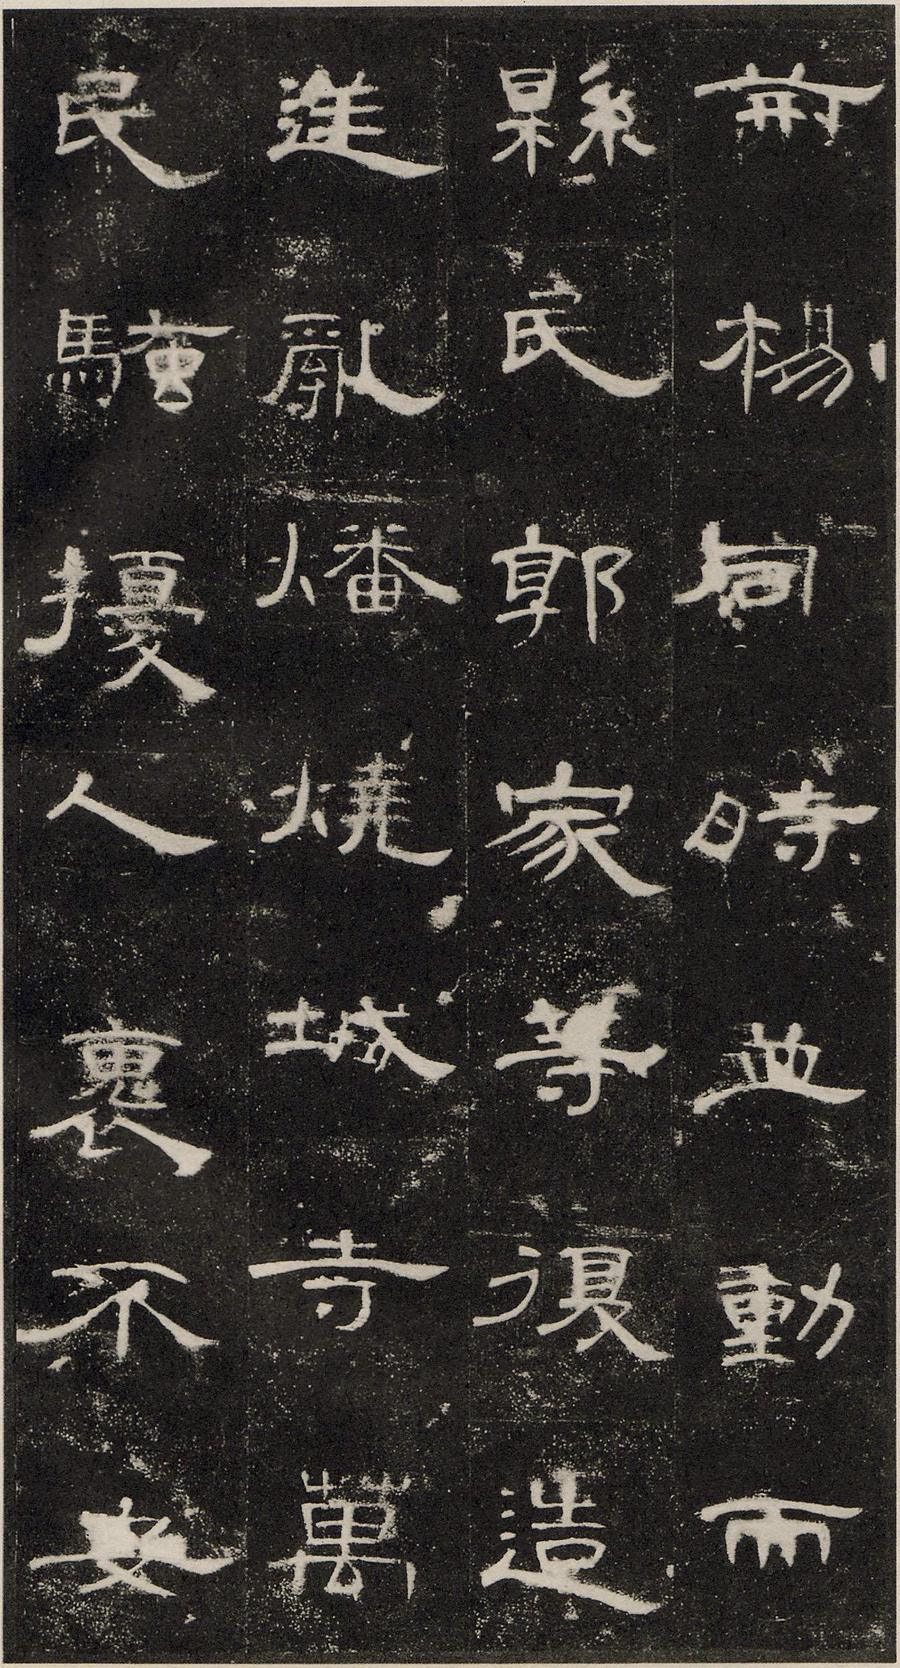 荊楊同時並動而
縣民郭家等復造
逆亂燔燒城寺萬
民騷擾人褢不安